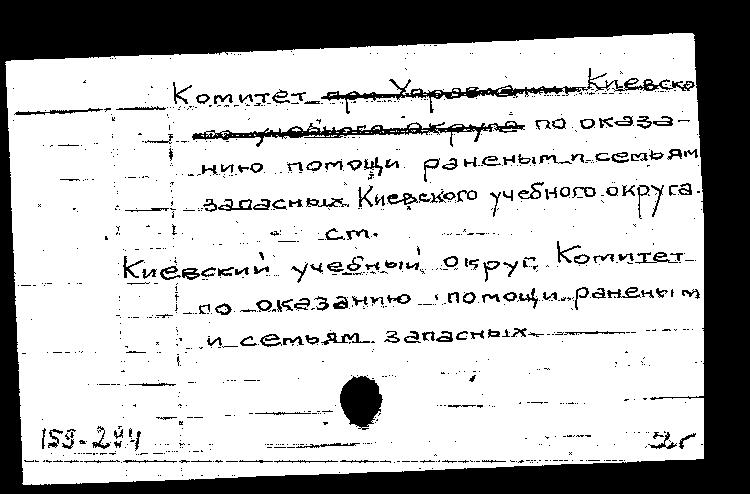 Комитет при Управлении Киевско
го учебного округа по оказа-
нию помощи раненым и семьям
запасных Киевского учебного округа.
см.
Киевский учебный округ. Комитет
по оказанию помощи раненым
и семьям запасных
159-294